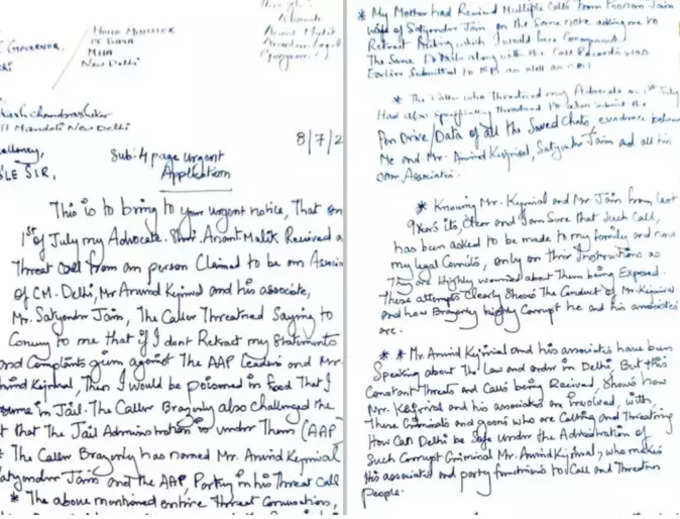 GOVERNOR,
HOME MINISTER
OF INDIA
MHA
NEW Delhi
Advocate
Anant Malik
kash Chandrashekar
11 Mandoli New Delhi
8/7/2
LE SIR,
Sub: 4 page Urgent
Application
This is to bring to your urgent notice, That on
1st of July my Advocate. Shri. Anant Malik Received a
Threat call from an person Claimed to be an Associ
of CM. Delhi, Mr Arvind Kejriwal and his associate,
Mr. Satyendr Jain, The Caller Threatned Saying to
Convey to me that if I dont Retract my Statements
and Complaints given against The AAP Leaders and Mr.
vind Kejriwal, Then I would be poisoned in Food That I
sume in Jail. The Caller Brazenly also Challenged the
t that The Jail Administration is under Them (AAP
* The Caller Brazenly has named Mr. Arvind Kejriwal
Satyendr Jain and the AAP, Party in his Threat Call
* The above mentioned entire Threat Conversation,
* My Mother had Received Multiple Calls from Poonam Jain
wife of Satyendar Jain on the Same note asking me to
Retract
The Same Details along with the Call Records was
Earlier Submitted to as well as
* The Caller who Threatened my Advocate on 1st July
Had also specifically Threatned to also submit the
Pen Drive/Data of all the Saved Chats, evidence between
Me and Mr. Arvind Kejriwal, Satyendr Jain and all his
Associates.
* Knowing Mr. Kejriwal and Mr Jain from last
9 years its, Clear and I am Sure that Such Call,
has been asked to be made to my family and now
my legal Counsils, only on their Instructions as
They are Highly worried about Them being Exposed.
These attempts clearly Shows The Conduct of Mr. Kejriwal
and how Brazenly highly Corrupt he and his associates
are.
* * Mr. Arvind Kejriwal and his associates have been
Speaking about The Law and order in Delhi, But this
Constant Threats and Calls being Received, Shows how
Mr. Kejriwal and his associates are Involved, with,
These Criminals and goons who are Calling and Threatning
How Can Delhi be Safe under the Administration of
Such Corrupt Criminal Mr. Arvind Kejriwal, who makes
His associates and party functions to Call and Threaten
People.